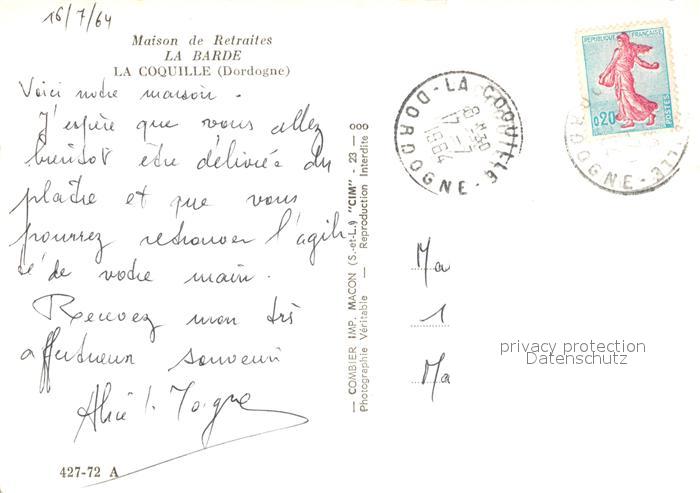 16/7/64
Maison de Retraites
LA BARDE
LA COQUILLE (Dordogne)
Voici notre maison.
J'espère que vous allez
bientôt être délivrée du
plâtre et que vous
pourrez retrouver l'agili
té de votre main.
Recevez mon très
affectueux souvenir
427-72 A
— COMBIER IMP. MACON (S.-et-L.) "CIM" — 23 — 000
Photographie Véritable — Reproduction Interdite
LA COQUILLE
DORDOGNE
8H30
17-7
1964
REPUBLIQUE FRANÇAISE
0,20
POSTES
DORDOGNE
Ma
1
Ma
privacy protection
Datenschutz